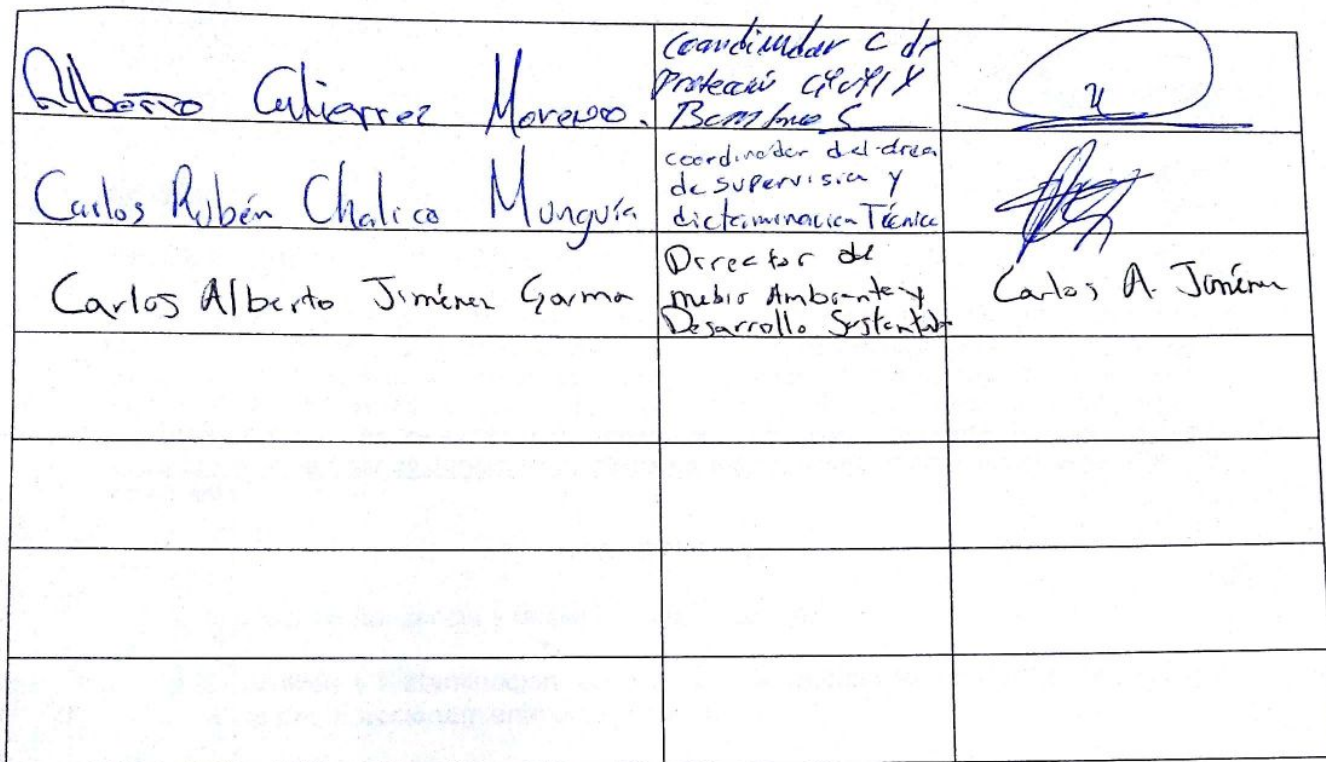 Alberto Gutierrez Moreno.
Coordinador C de
Protección Civil y
Bomberos
Carlos Rubén Chalico Munguía
coordinador del area
de supervisión y
dictaminación Técnica
Carlos Alberto Jiménez Garma
Director de
medio Ambiente y
Desarrollo Sustentable
Carlos A. Jiménez